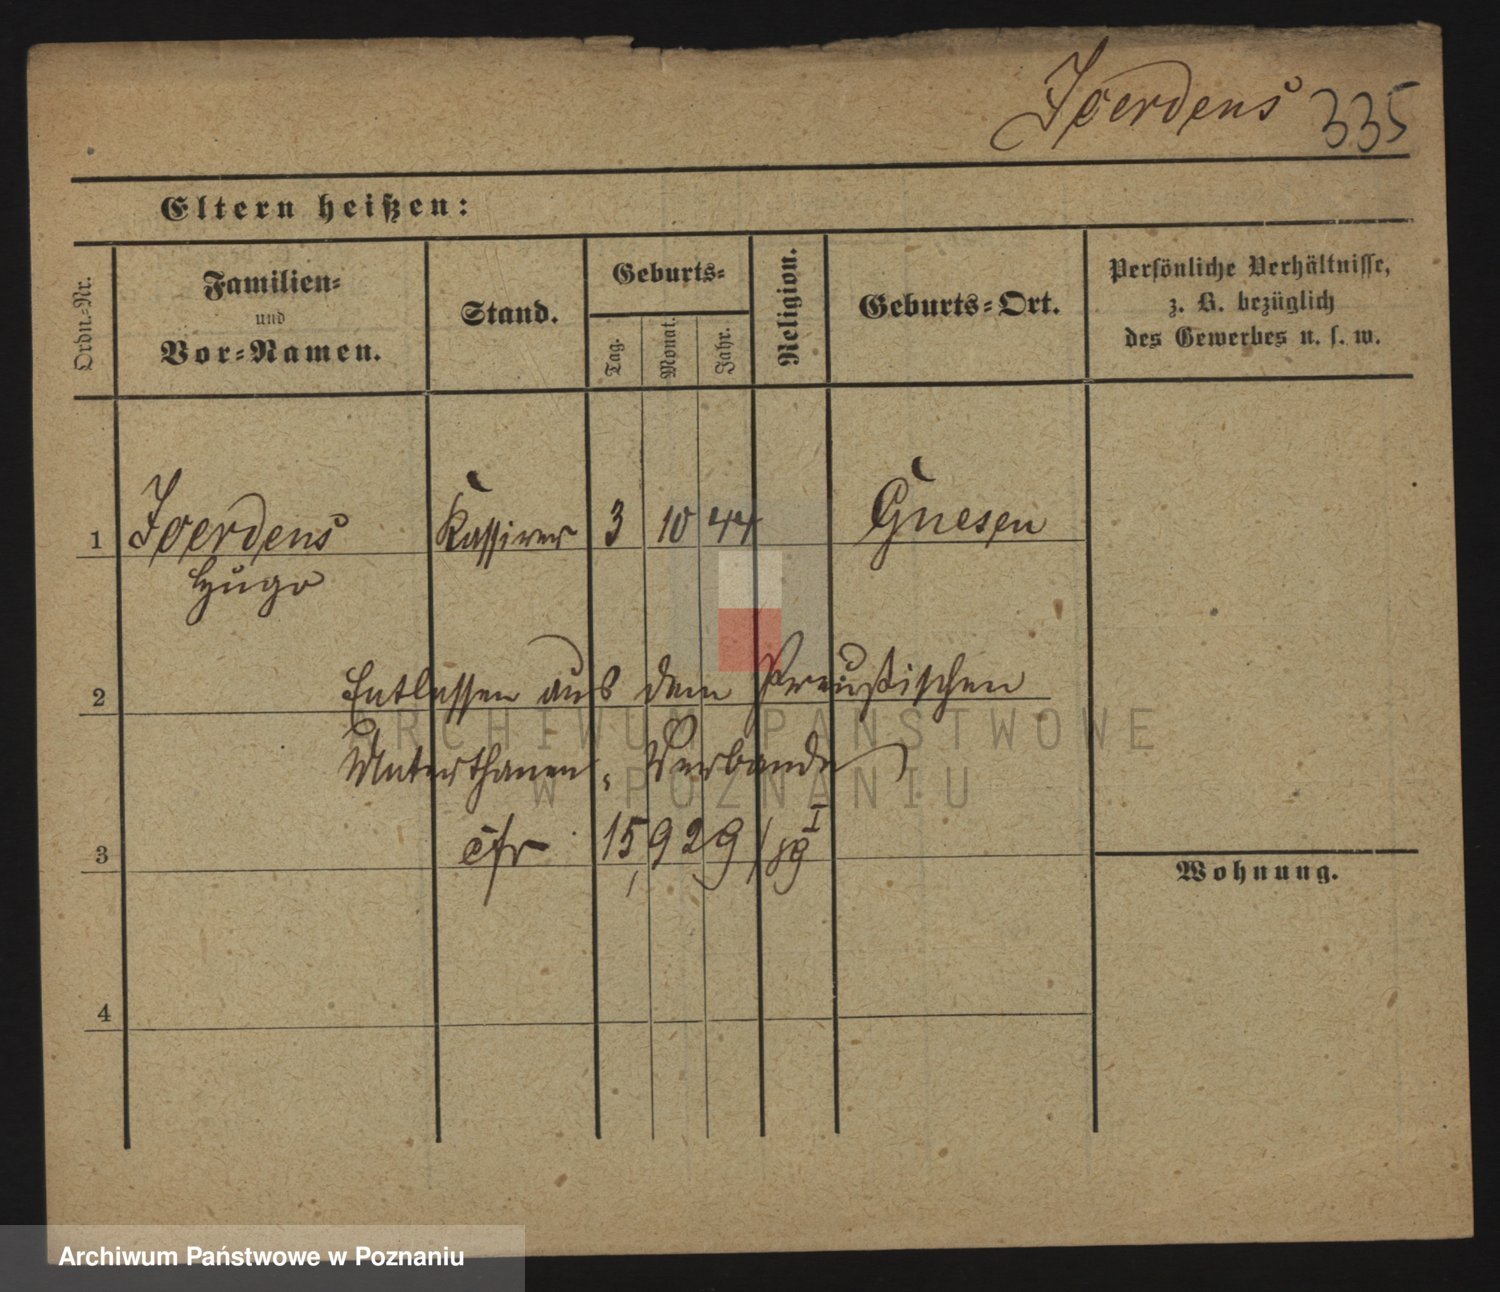 Joerdens 335
Eltern heißen:
Ordn.-Nr.
Familien-
und
Vor-Namen.
Stand.
Geburts-
Tag.
Monat.
Jahr.
Religion.
Geburts-Ort.
Persönliche Verhältnisse,
z. B. bezüglich
des Gewerbes u. s. w.
1 Joerdens Kassirer 3 10 44 Gnesen
Hugo
2 Entlassen aus dem Preußischen
Unterthanen-Verbande
3 cfr 15929/89 I
Wohnung.
4
ARCHIWUM PAŃSTWOWE
W POZNANIU
Archiwum Państwowe w Poznaniu